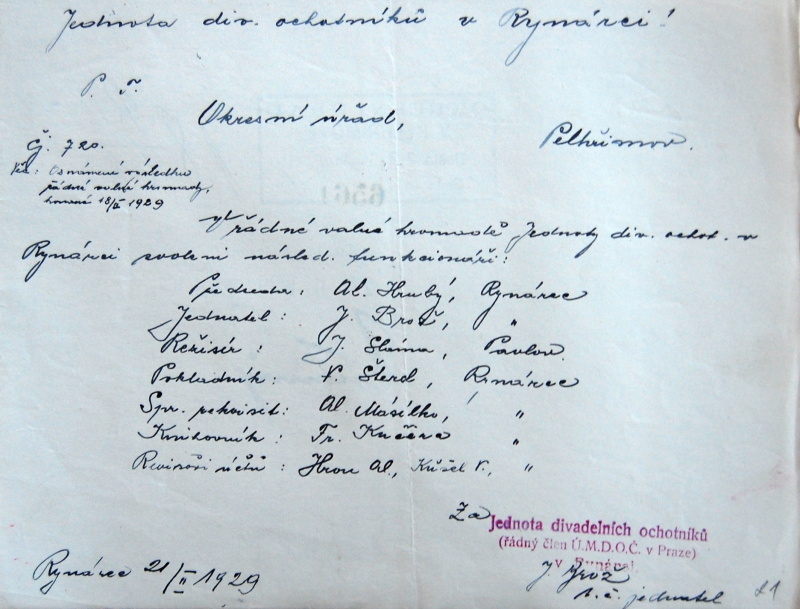 Jednota div. ochotníků v Rynárci!
P. T.
Okresní úřad,
Pelhřimov.
Čj. 720.
Věc: Oznámení výsledku
řádné valné hromady,
konané 18/II 1929
V řádné valné hromadě Jednoty div. ochot. v
Rynárci zvoleni násled. funkcionáři:
Předseda: Al. Hrubý, Rynárec
Jednatel: J. Brož, "
Režisér: J. Sláma, Pavlov.
Pokladník: V. Šterd, Rynárec
Spr. rekvisit: Al. Másilko, "
Knihovník: Fr. Kučera "
Revisoři účtů: Hron Al., Kůžel V., "
Za Jednota divadelních ochotníků
(řádný člen Ú.M.D.O.Č. v Praze)
v Rynárci
Rynárec 21/II 1929
J. Brož
t. č. jednatel
21